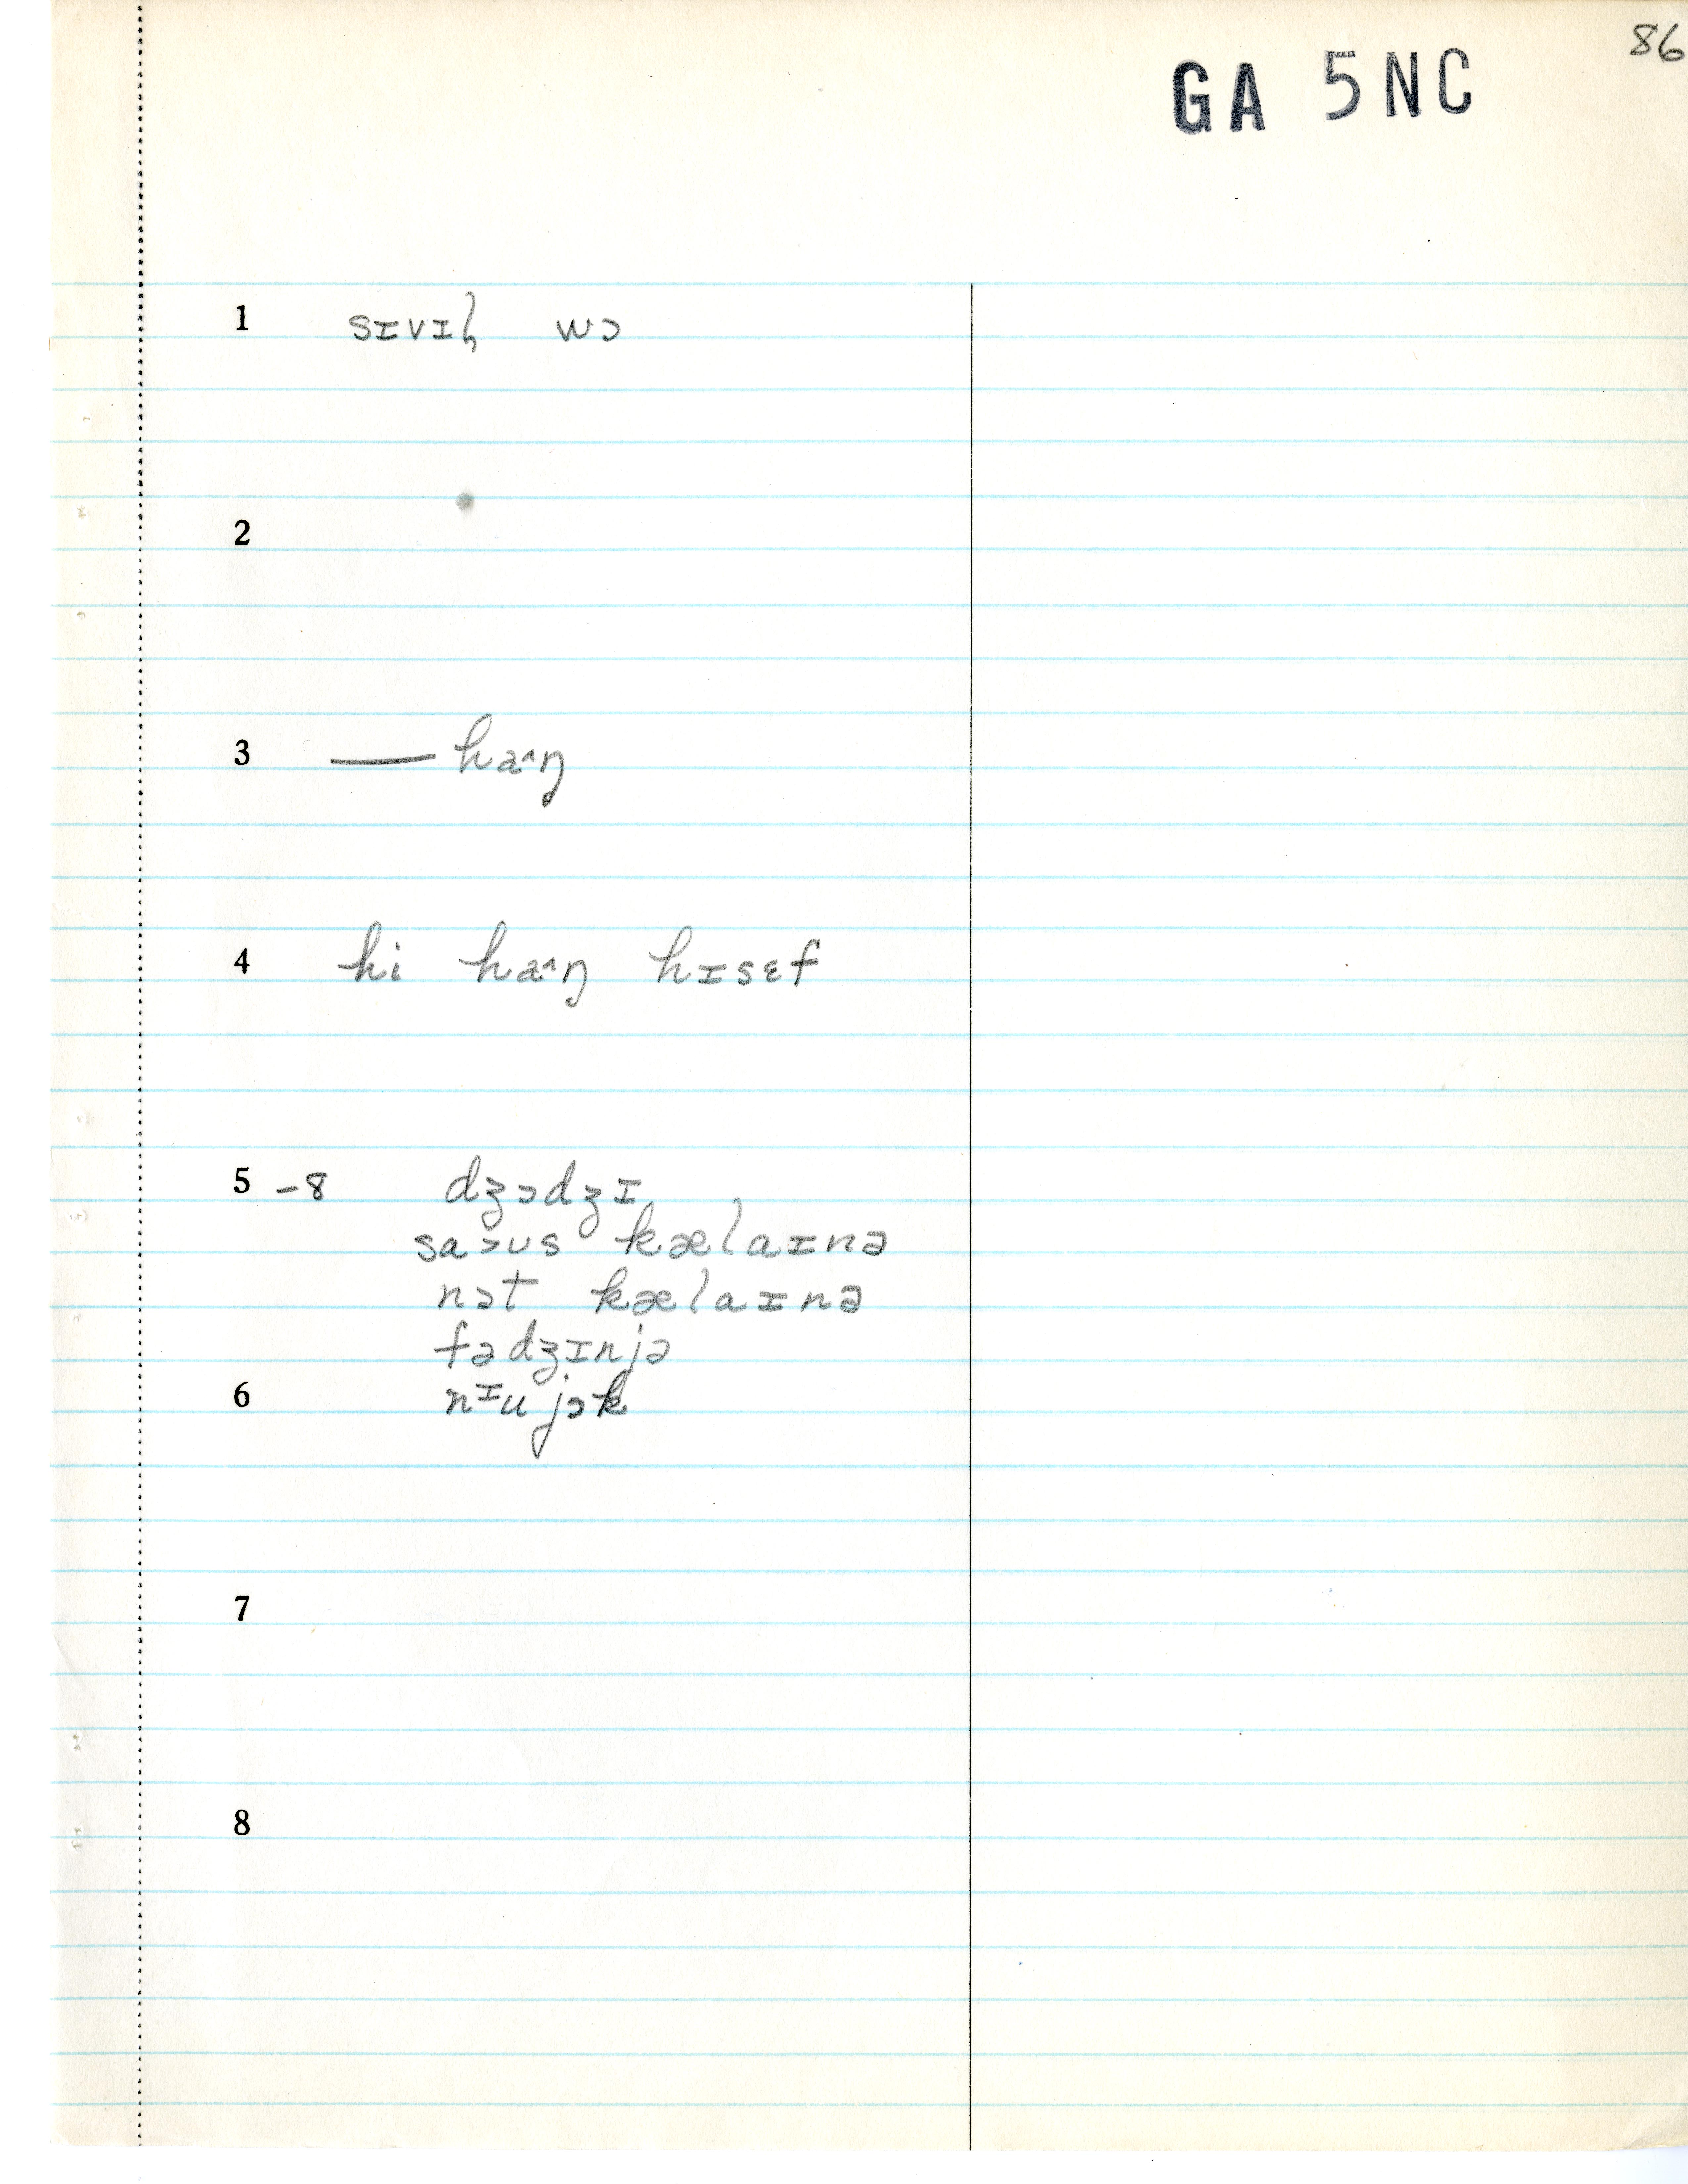 86
GA 5NC
1 sɪvɪl̩ wɔ
2
3 — haᶺŋ
4 hi haᶺŋ hɪsɛf
5 -8 dʒɔdʒɪ
saɔus kælaɪnə
nɔt kælaɪnə
fədʒɪnjə
6 nᶦu jɔk
7
8